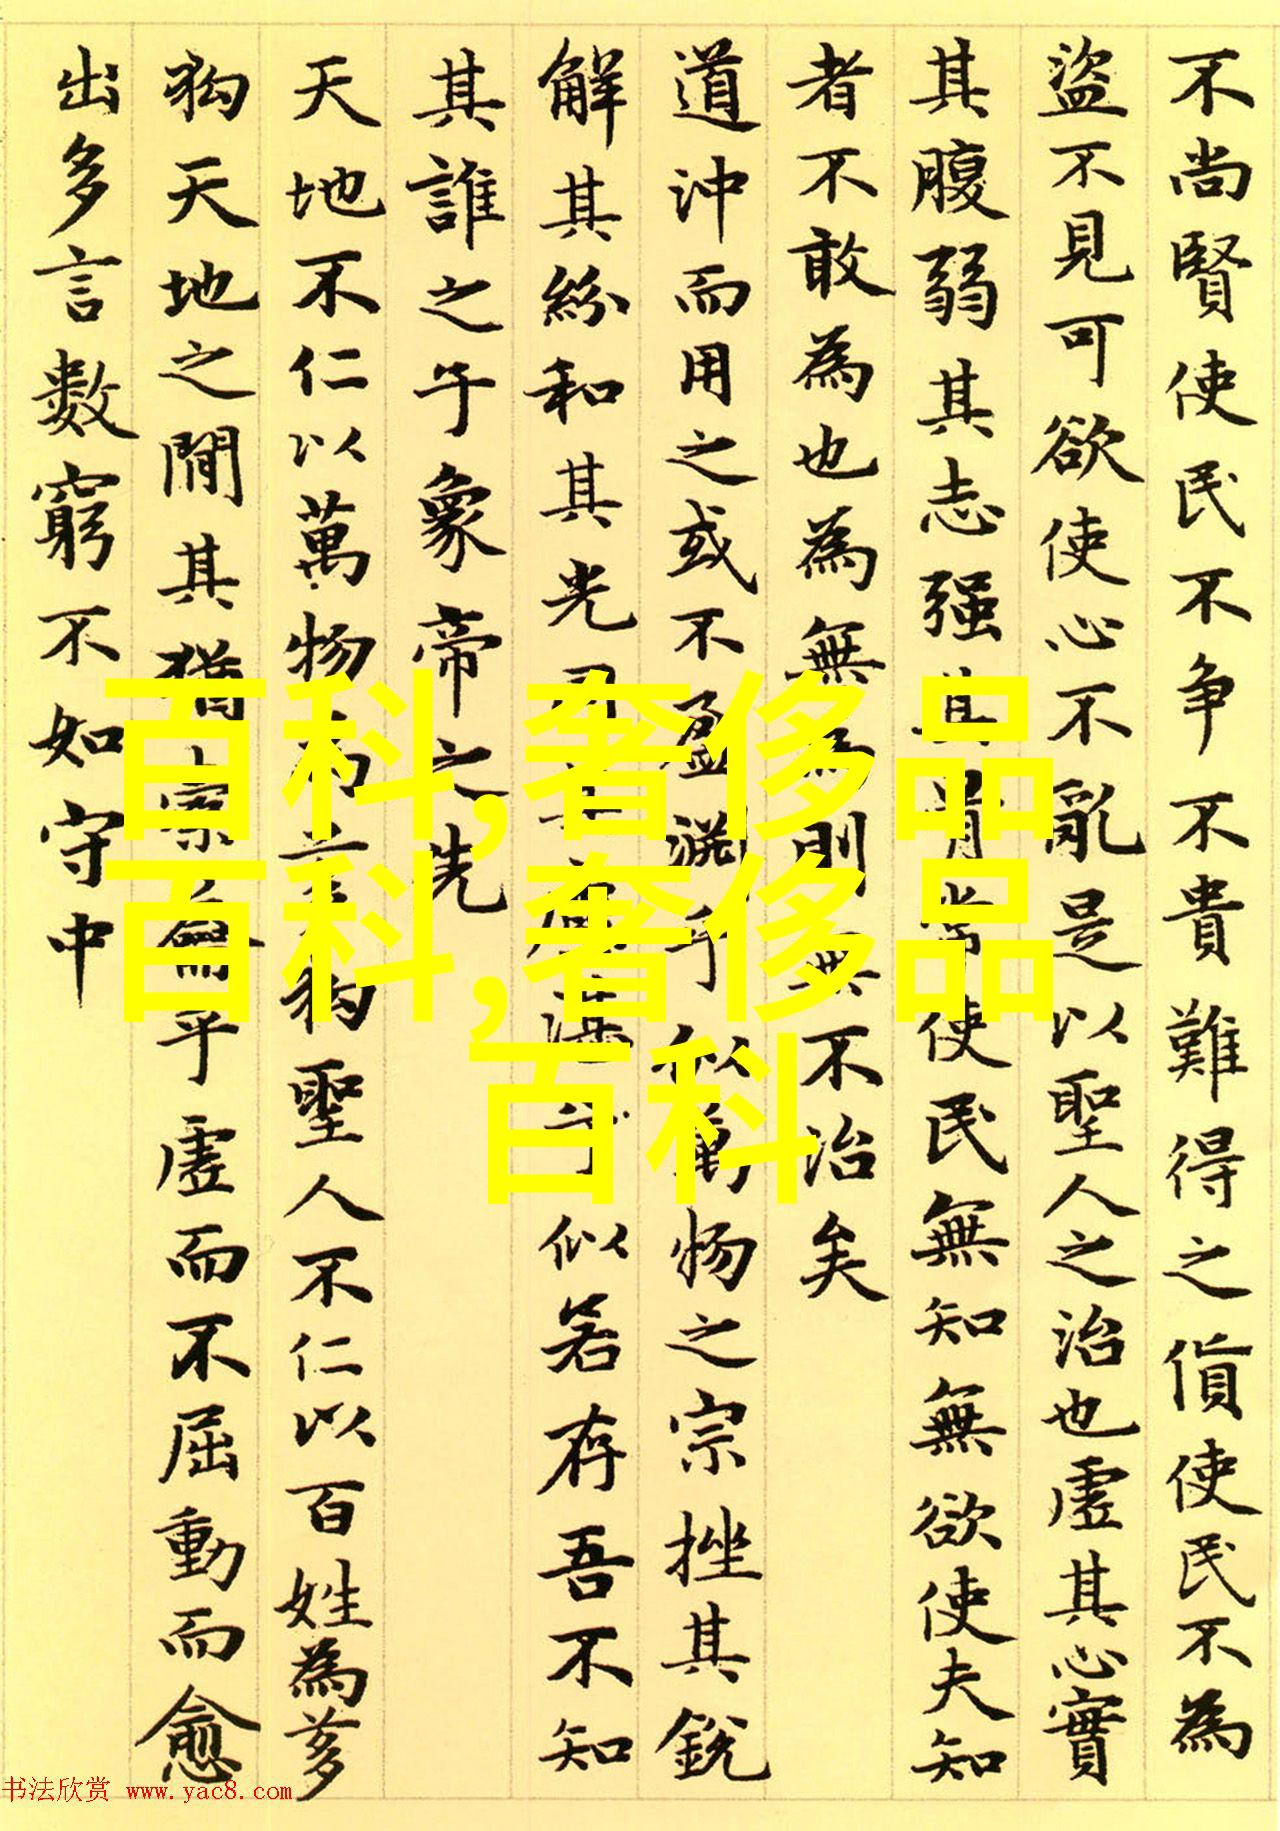 不尚賢使民不争不貴難得之貨使民不為
盜不見可欲使心不亂是以聖人之治也虛其心實
其腹弱其志强其骨常使民無知無欲使夫知
者不敢為也為無為則無不治矣
道沖而用之或不盈淵乎似萬物之宗挫其銳
解其紛和其光同其湛乎似若存吾不知
其誰之子象帝之先
天地不仁以萬物為狗聖人不仁以百姓為芻
狗天地之間其猶橐籥乎虛而不屈動而愈
出多言數窮不如守中
百科,奢侈品
百科,奢侈品
百科
书法欣赏 www.yac8.com